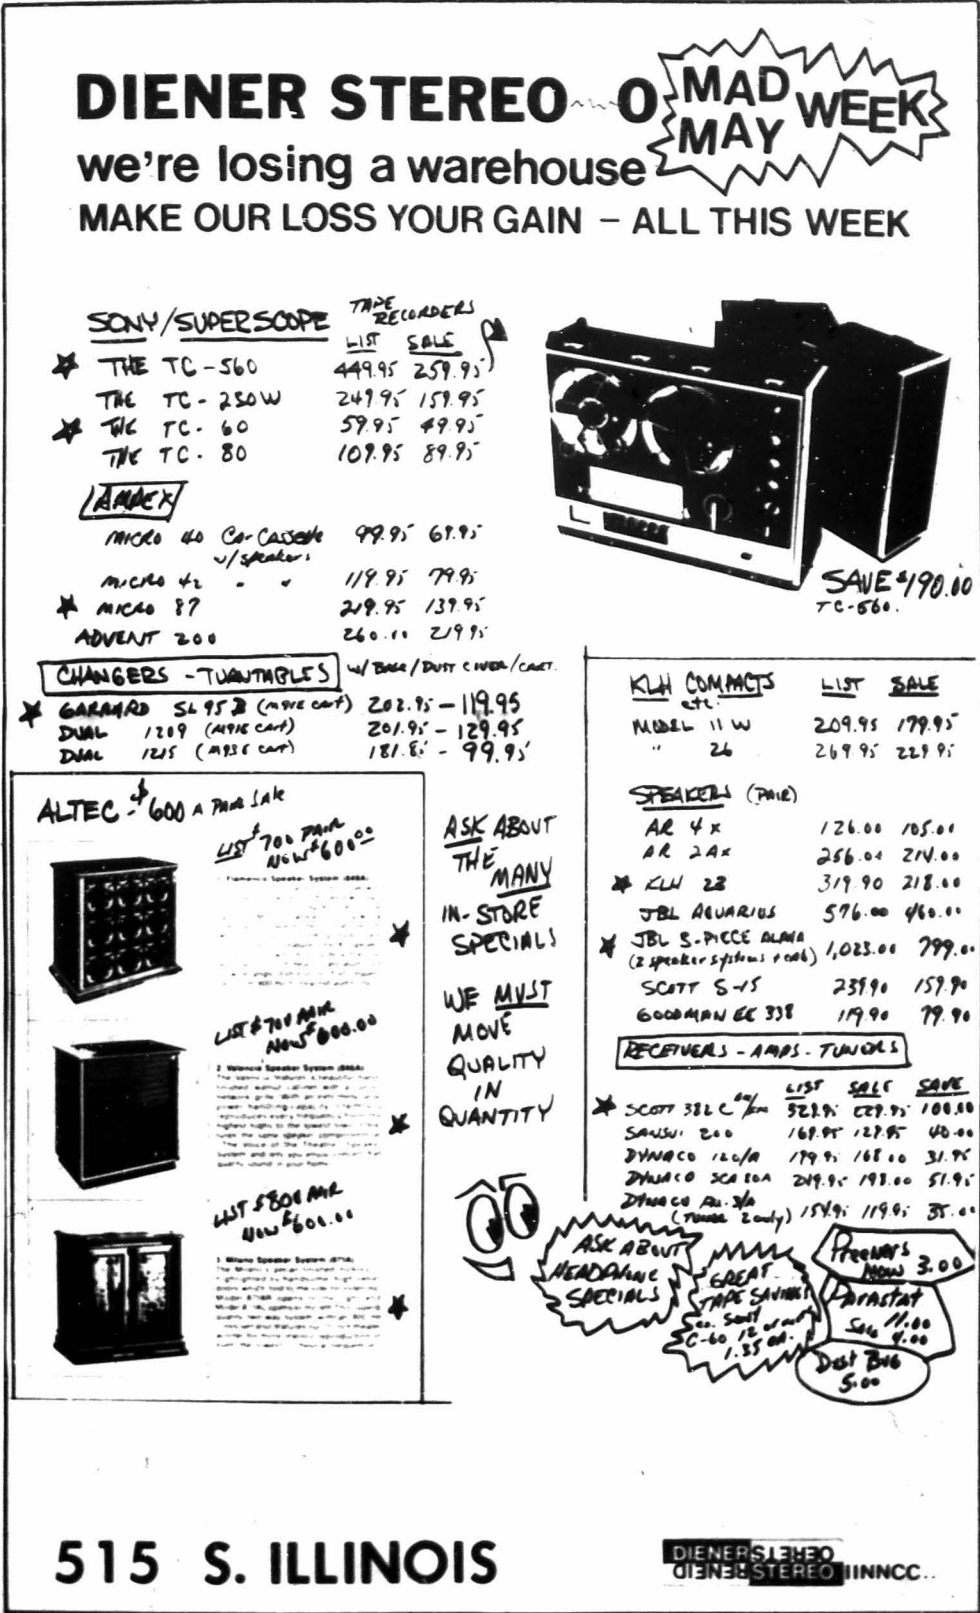 DIENER STEREO O
MAD
MAY WEEK
we're losing a warehouse
MAKE OUR LOSS YOUR GAIN – ALL THIS WEEK
SONY/SUPERSCOPE TAPE RECORDERS
LIST SALE
THE TC-560 449.95 259.95
THE TC-230W 249.95 159.95
THE TC-60 59.95 49.95
THE TC-80 109.95 89.95
AMPEX
MICRO 40 Cassette 99.95 69.95
w/speakers
MICRO 42 " " 119.95 79.95
MICRO 87 219.95 139.95
ADVENT 200 260.00 219.95
SAVE $190.00
TC-560.
CHANGERS - TURNTABLES w/ BASE / DUST COVER / CART.
GARRARD SL 95 B (M91E CART) 202.95 – 119.95
DUAL 1209 (M91E CART) 201.95 – 129.95
DUAL 1215 (M93E CART) – 99.95
ALTEC - $600 A PAIR SALE
LIST $700 PAIR
NOW $600.00
1 Flamenco Speaker System (848A)
LIST $700 PAIR
NOW $600.00
2 Valencia Speaker System (846A)
LIST $800 PAIR
NOW $600.00
3 Milano Speaker System
ASK ABOUT
THE
MANY
IN-STORE
SPECIALS
WE MUST
MOVE
QUALITY
IN
QUANTITY
KLH COMPACTS LIST SALE
etc.
MODEL 11 W 209.95 179.95
" 26 269.95 229.95
SPEAKERS (PAIR)
AR 4x 126.00 105.00
AR 2Ax 256.00 214.00
KLH 23 319.90 218.00
JBL AQUARIUS 576.00 460.00
JBL 3-PIECE 1,023.00 799.00
(2 speaker systems + cab)
SCOTT S-15 239.90 159.90
GOODMAN EE 338 119.90 79.90
RECEIVERS - AMPS - TUNERS
LIST SALE SAVE
SCOTT 382 C 100.00
SANSUI 200 169.95 129.95 40.00
DYNACO 120/A 199.95 168.00 31.95
DYNACO SCA 80A 249.95 198.00 51.95
DYNACO 154.95 119.95 35.00
(TUNER 2 only)
ASK ABOUT
HEADPHONE
SPECIALS
GREAT
TAPE SAVINGS
C-60 12 or more
1.35 ea.
Preeners
Now 3.00
Parastat
11.00
Sale 4.00
Dust Bug
5.00
515 S. ILLINOIS
DIENER STEREO
DIENER STEREO IINNCC..